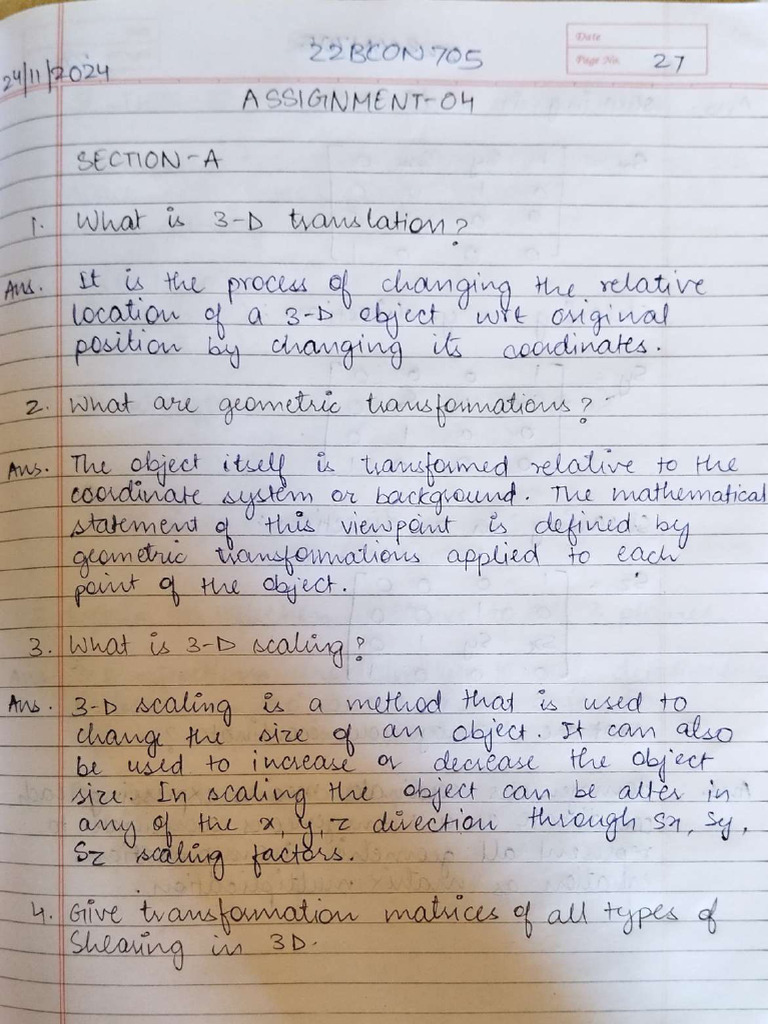 22BCON705
Date
Page No. 27
24/11/2024
ASSIGNMENT-04
SECTION-A
1. What is 3-D translation?
Ans. It is the process of changing the relative
location of a 3-D object wrt original
position by changing its coordinates.
2. What are geometric transformations?
Ans. The object itself is transformed relative to the
coordinate system or background. The mathematical
statement of this viewpoint is defined by
geometric transformations applied to each
point of the object.
3. What is 3-D scaling?
Ans. 3-D scaling is a method that is used to
change the size of an object. It can also
be used to increase or decrease the object
size. In scaling the object can be alter in
any of the x, y, z direction through Sx, Sy,
Sz scaling factors.
4. Give transformation matrices of all types of
Shearing in 3D.